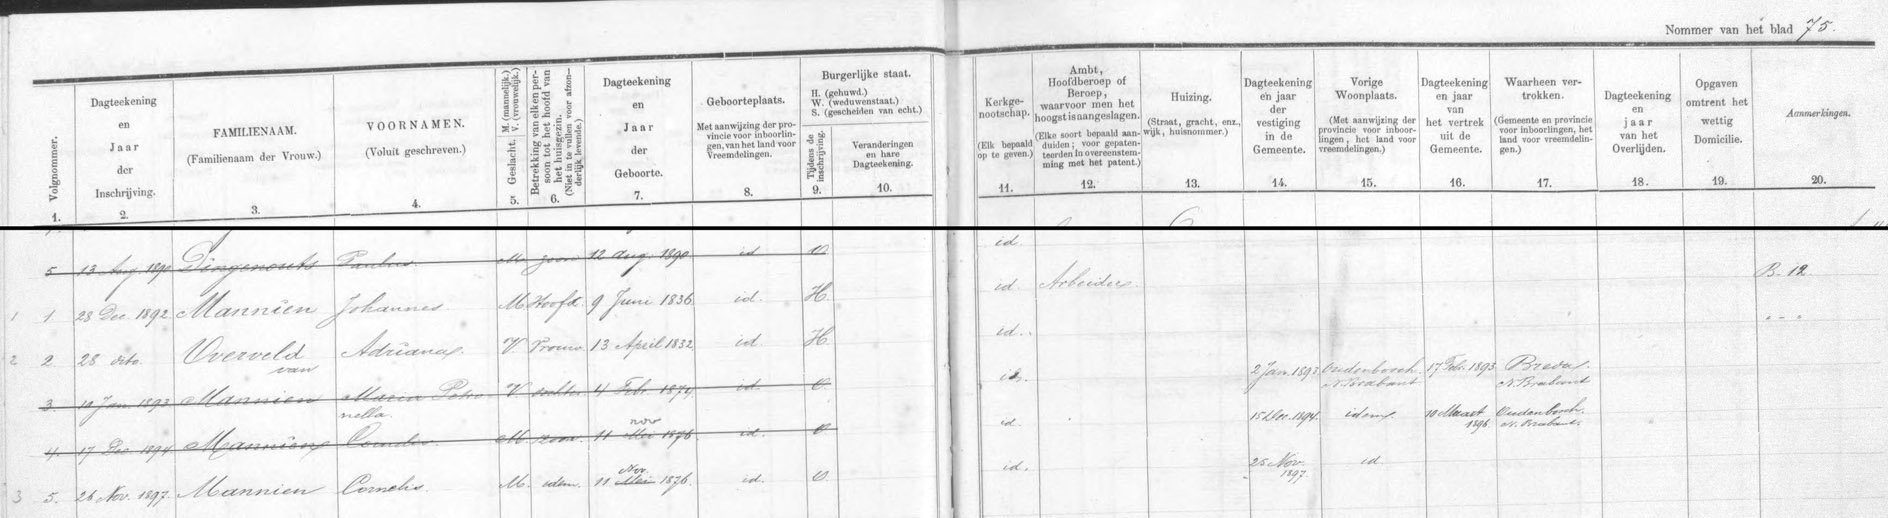 Nommer van het blad 75.
Volgnommer.
1.
Dagteekening
en
Jaar
der
Inschrijving.
2.
FAMILIENAAM.
(Familienaam der Vrouw.)
3.
VOORNAMEN.
(Voluit geschreven.)
4.
Geslacht. M. (mannelijk.)
V. (vrouwelijk.)
5.
Betrekking van elken per-
soon tot het hoofd van
het huisgezin.
(Niet in te vullen voor afzon-
derlijk levende.)
6.
Dagteekening
en
Jaar
der
Geboorte.
7.
Geboorteplaats.
Met aanwijzing der pro-
vincie voor inboorlin-
gen, van het land voor
Vreemdelingen.
8.
Burgerlijke staat.
H. (gehuwd.)
W. (weduwenstaat.)
S. (gescheiden van echt.)
Tijdens de
inschrijving.
9.
Veranderingen
en hare
Dagteekening.
10.
Kerkge-
nootschap.
(Elk bepaald
op te geven.)
11.
Ambt,
Hoofdberoep of
Beroep,
waarvoor men het
hoogst is aangeslagen.
(Elke soort bepaald aan-
duiden; voor gepaten-
teerden in overeenstem-
ming met het patent.)
12.
Huizing.
(Straat, gracht, enz.,
wijk, huisnommer.)
13.
Dagteekening
en jaar
der
vestiging
in de
Gemeente.
14.
Vorige
Woonplaats.
(Met aanwijzing der
provincie voor inboor-
lingen, het land voor
vreemdelingen.)
15.
Dagteekening
en jaar
van
het vertrek
uit de
Gemeente.
16.
Waarheen ver-
trokken.
(Gemeente en provincie
voor inboorlingen, het
land voor vreemdelin-
gen.)
17.
Dagteekening
en
jaar
van het
Overlijden.
18.
Opgaven
omtrent het
wettig
Domicilie.
19.
Aanmerkingen.
20.
5 13 Aug 1890 Dingenouts Paulus M zoon 12 Aug. 1890 id O id
1 1 28 Dec. 1892 Mannien Johannes M Hoofd. 9 Juni 1836 id. H. id Arbeider. B. 12
2 2 28 dito. Overveld van Adriana. V Vrouw 13 April 1832 id. H. id.
3. 19 Jan. 1893 Mannien Maria Petro-
nella. V dochter 4 Febr 1874 id. O id. 2 Jan. 1893 Oudenbosch N. Brabant 17 Feb. 1893 Breda. N. Brabant
4. 17 Dec 1894 Mannien Cornelis M zoon 11 Mei nov 1876 id. O id. 15 Dec. 1894. idem 10 Maart 1896 Oudenbosch. N. Brabant.
3 5. 26 Nov. 1897. Mannien Cornelis. M. idem. 11 Mei Nov. 1876. id. O id. 25 Nov. 1897. id